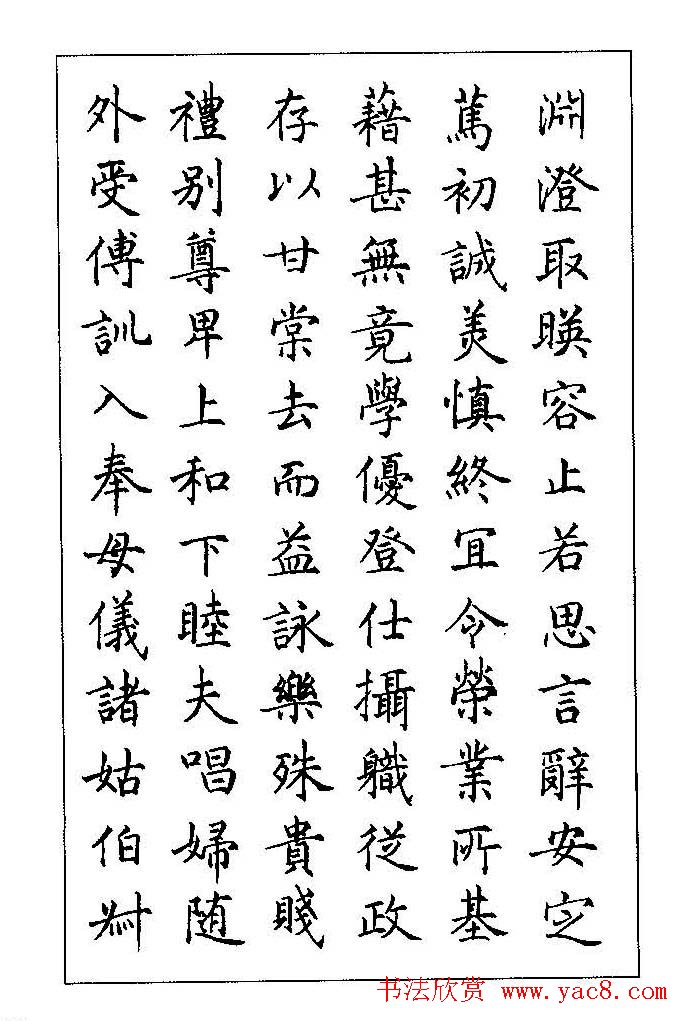 淵澄取暎容止若思言辭安定
篤初誠美慎終宜令榮業所基
藉甚無竟學優登仕攝職從政
存以甘棠去而益詠樂殊貴賤
禮別尊卑上和下睦夫唱婦随
外受傅訓入奉母儀諸姑伯叔
书法欣赏 www.yac8.com